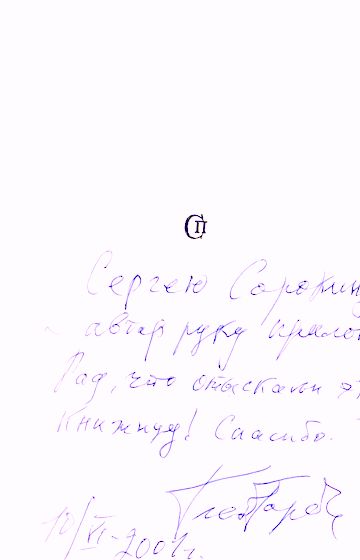 СП
Сергею Сорокину
автор руку прилож
Рад, что отыскали эт
книжицу! Спасибо.
10/VI-2001г.